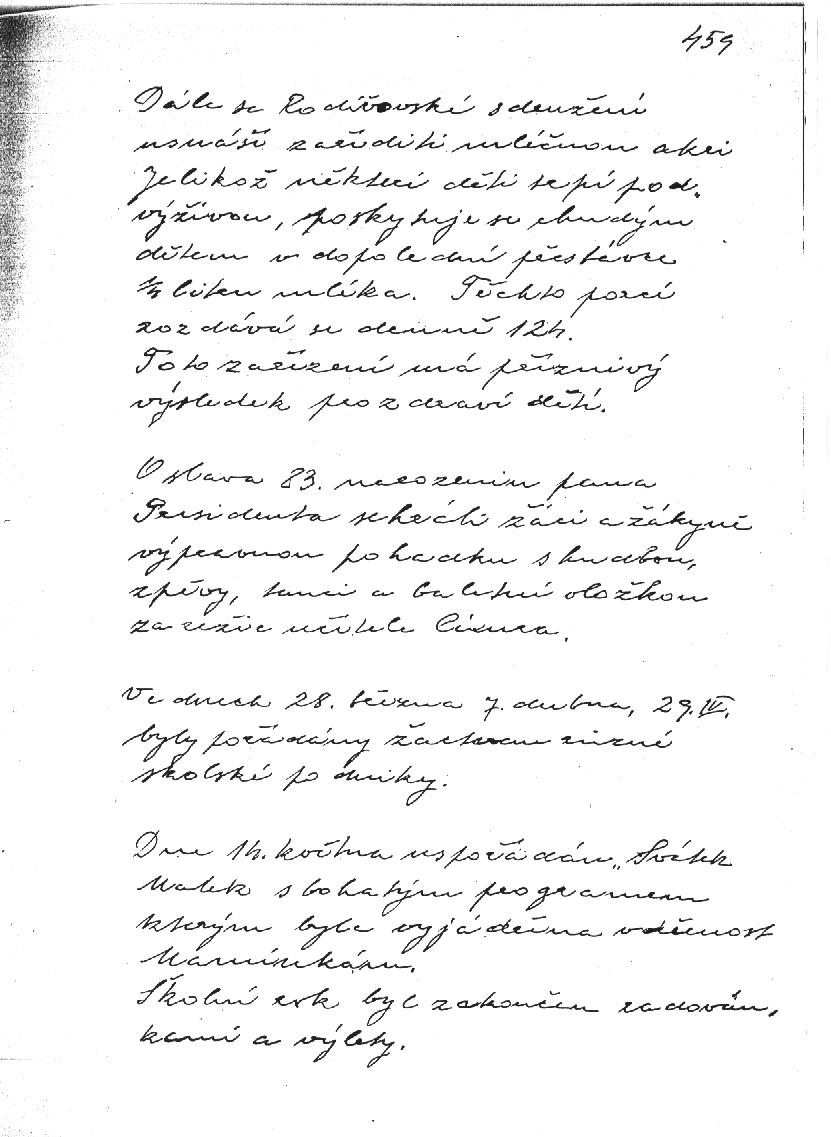 459
Dále se Rodičovské sdružení
usnáší zaříditi mléčnou akci
Jelikož někteří děti trpí pod-
výživou, poskytuje se chudým
dětem v dopolední přestávce
¼ liter mléka. Těchto porcí
rozdává se denně 124.
Toto zařízení má příznivý
výsledek pro zdraví dětí.
Oslava 83. narozenin pana
Presidenta sehráli žáci a žákyně
výpravnou pohadku s hudbou,
zpěvy, tanci a baletní vložkou
za režie učitele
Ve dnech 28. března 7. dubna, 29. IV.
byly pořádány žactvem různé
školské podniky.
Dne 14. května uspořádán „Svátek
Matek s bohatým programem
kterým byla vyjádřena vděčnost
Maminkám.
Školní rok byl zakončen radován-
kami a výlety.